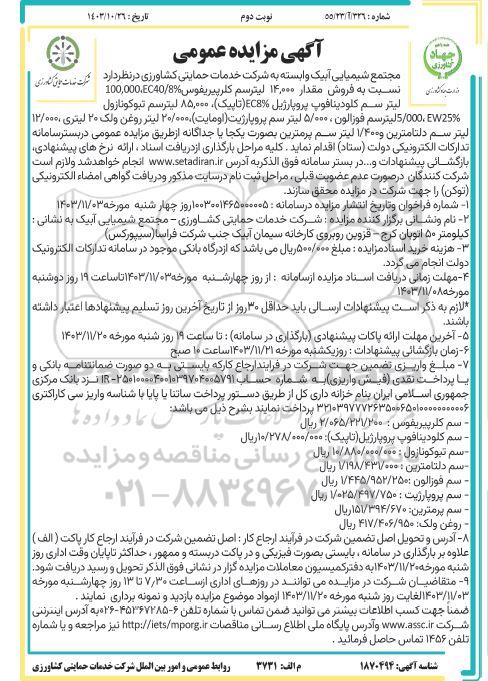 شماره : ۵۵/۲۳/آ/۳۲۶
نوبت دوم
تاریخ : ۱۴۰۳/۱۰/۲۶
جهاد کشاورزی
وزارت جهاد کشاورزی
آگهی مزایده عمومی
شرکت خدمات حمایتی کشاورزی
مجتمع شیمیایی آبیک وابسته به شرکت خدمات حمایتی کشاورزی در نظر دارد
نسبت به فروش مقدار ۱۴,۰۰۰ لیتر سم کلرپیریفوس EC40/8%،100,000
لیتر سم کلودینافوپ پروپارژیل EC8% (تاپیک)، ۸۵,۰۰۰ لیتر سم تیوکونازول
EW25% ،5/000 لیتر سم فوزالون ، ۵/۰۰۰ لیتر سم پروپارژیت (اومایت)، ۲۰/۰۰۰ لیتر روغن ولک ۲۰ لیتری ،۱۲/۰۰۰
لیتر سم دلتامترین و ۱/۴۰۰ لیتر سم پرمترین بصورت یکجا یا جداگانه از طریق مزایده عمومی در بستر سامانه
تدارکات الکترونیکی دولت (ستاد) اقدام نماید . کلیه مراحل بارگذاری از دریافت اسناد ، ارائه نرخ های پیشنهادی،
بازگشائی پیشنهادات و... در بستر سامانه فوق الذکر به آدرس www.setadiran.ir انجام خواهد شد ولازم است
شرکت کنندگان در صورت عدم عضویت قبلی ، مراحل ثبت نام در سایت مذکور ودریافت گواهی امضاء الکترونیکی
(توکن) را جهت شرکت در مزایده محقق سازند.
۱- شماره فراخوان وتاریخ انتشار مزایده درسامانه : ۱۰۰۳۰۰۱۴۶۵۰۰۰۰۰۵ روز چهار شنبه مورخه ۱۴۰۳/۱۱/۰۳
۲- نام ونشانی برگزار کننده مزایده : شرکت خدمات حمایتی کشاورزی – مجتمع شیمیایی آبیک به نشانی :
کیلومتر ۵۰ اتوبان کرج – قزوین روبروی کارخانه سیمان آبیک جنب شرکت فراسا(سیپورکس)
۳- هزینه خرید اسناد مزایده : مبلغ ۵۰۰/۰۰۰ ریال می باشد که از درگاه بانکی موجود در سامانه تدارکات الکترونیک
دولت انجام می گردد.
۴- مهلت زمانی دریافت اسناد مزایده ازسامانه : از روز چهارشنبه مورخه ۱۴۰۳/۱۱/۰۳ تاساعت ۱۹ روز دوشنبه
مورخه ۱۴۰۳/۱۱/۰۸
*لازم به ذکر است پیشنهادات ارسالی باید حداقل ۳۰ روز از تاریخ آخرین روز تسلیم پیشنهادها اعتبار داشته
باشند.
۵- آخرین مهلت ارائه پاکات پیشنهادی (بارگذاری در سامانه) : تا ساعت ۱۹ روز شنبه مورخه ۱۴۰۳/۱۱/۲۰
۶- زمان بازگشائی پیشنهادات : روز یکشنبه مورخه ۱۴۰۳/۱۱/۲۱ ساعت ۱۰ صبح
۷- مبلغ واریزی تضمین جهت شرکت در فرایند ارجاع کار که بایستی به دو صورت ضمانتنامه بانکی و
یا پرداخت نقدی (فیش واریزی) به شماره حساب IR-۲۵۰۱۰۰۰۰۴۰۰۱۰۳۹۷۰۴۰۰۵۷۹۱ نزد بانک مرکزی
جمهوری اسلامی ایران بنام خزانه داری کل از طریق دستور پرداخت ساتنا یا پایا با شناسه واریز سی کاراکتری
۳۲۱۰۳۹۷۷۷۲۶۳۵۰۰۶۵۰۱۰۰۰۰۰۰۰۰۰۰۶ پرداخت نمایند بشرح ذیل می باشد:
- سم کلرپیریفوس : ۲/۰۶۵/۲۲۱/۲۰۰ ریال
- سم کلودینافوپ پروپارژیل (تاپیک): ۱۰/۲۷۸/۰۰۰/۰۰۰ ریال
-سم تیوکونازول : ۱۰/۸۸۰/۰۰۰/۰۰۰ ریال
-سم دلتامترین : ۱/۱۹۸/۴۳۱/۰۰۰ ریال
- سم فوزالون : ۱/۴۴۵/۹۵۲/۲۵۰ ریال
- سم پروپارژیت : ۱/۰۲۵/۴۹۷/۷۵۰ ریال
- سم پرمترین: ۱۵۱/۳۹۴/۶۷۰ ریال
- روغن ولک: ۴۱۷/۴۰۶/۹۵۰ ریال
۸- آدرس و تحویل اصل تضمین شرکت در فرآیند ارجاع کار : اصل تضمین شرکت در فرآیند ارجاع کار پاکت ( الف )
علاوه بر بارگذاری در سامانه ، بایستی بصورت فیزیکی و در پاکت دربسته و ممهور ، حداکثر تا پایان وقت اداری روز
شنبه مورخه ۱۴۰۳/۱۱/۲۰ به دفتر کمیسیون معاملات مزایده گزار در نشانی فوق الذکر تحویل و رسید دریافت شود.
۹- متقاضیان شرکت در مزایده می توانند در روزهای اداری از ساعت ۷/۳۰ تا ۱۳ روز چهارشنبه مورخه
۱۴۰۳/۱۱/۰۳ لغایت روز شنبه مورخه ۱۴۰۳/۱۱/۲۰ از مواد موضوع مزایده بازدید و نمونه برداری نمایند .
ضمناً جهت کسب اطلاعات بیشتر می توانید ضمن تماس با شماره تلفن ۶-۴۵۳۶۷۲۸۵-۰۲۶ به آدرس اینترنتی
شرکت www.assc.ir وآدرس پایگاه ملی اطلاع رسانی مناقصات http://iets/mporg.ir نیز مراجعه و یا شماره
تلفن ۱۴۵۶ تماس حاصل فرمائید .
شناسه آگهی: ۱۸۷۰۴۹۴
م الف: ۳۷۳۱
روابط عمومی و امور بین الملل شرکت خدمات حمایتی کشاورزی